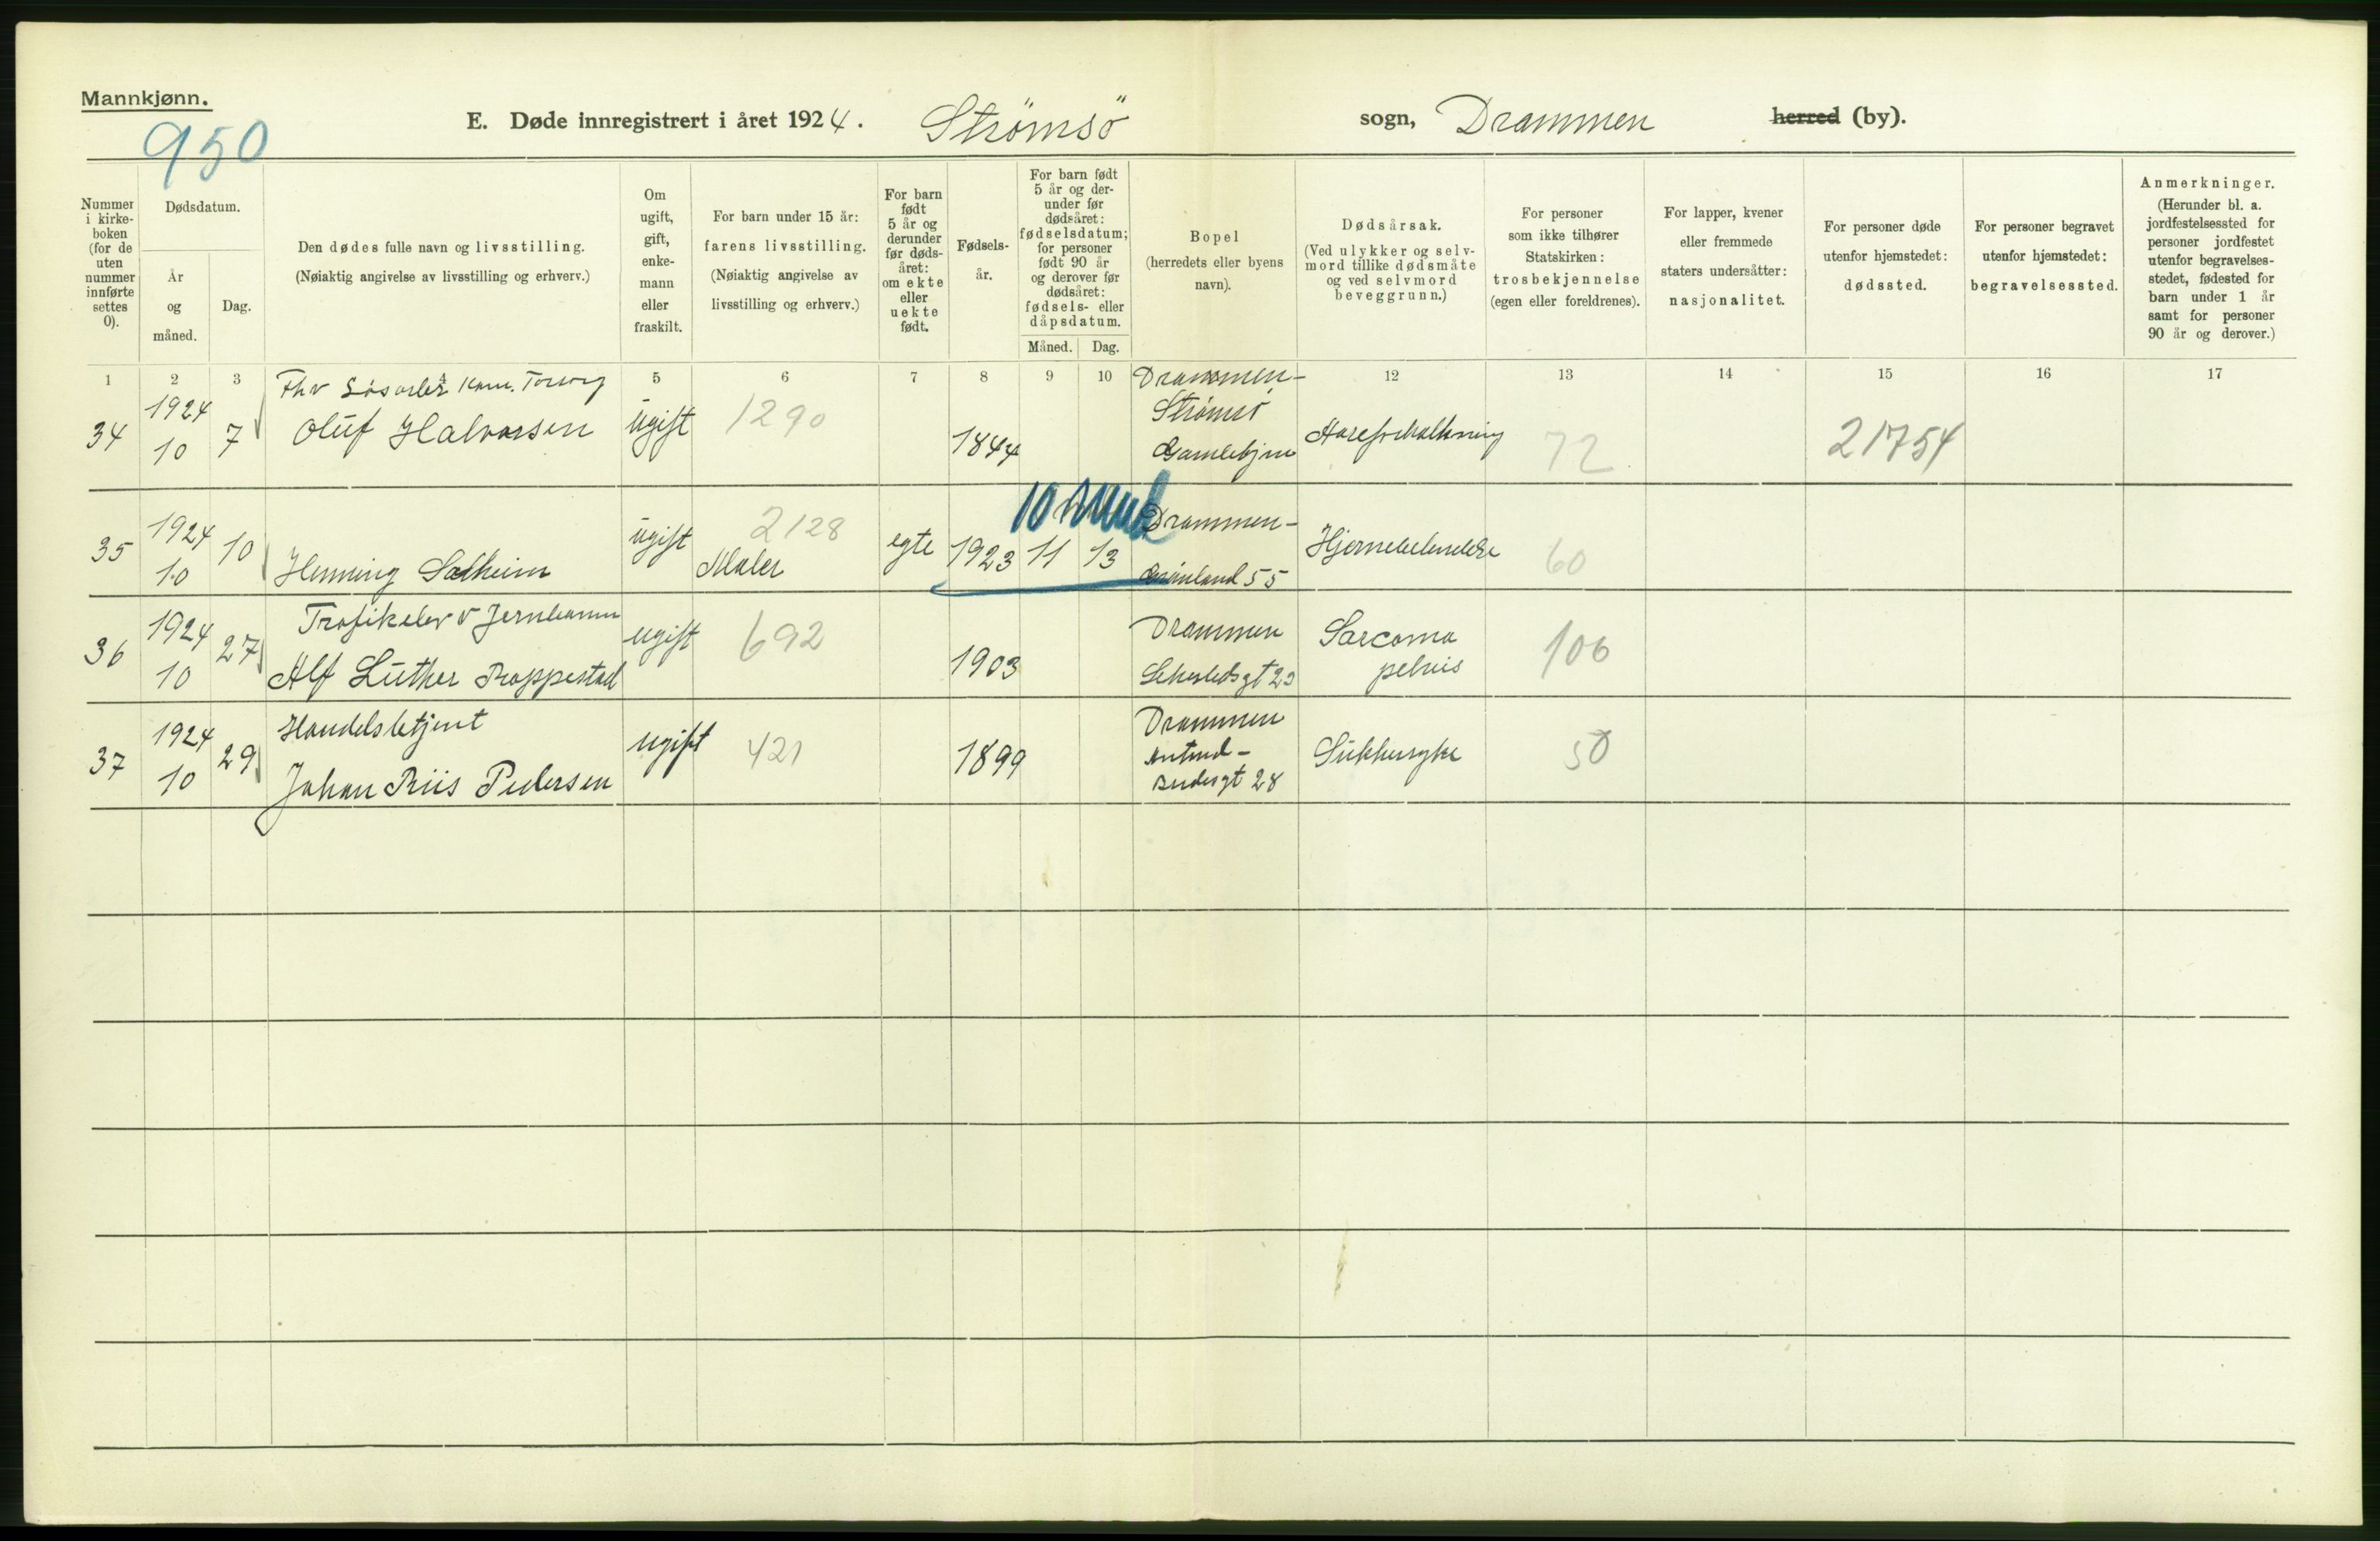 Mannkjønn.
950
E. Døde innregistrert i året 1924. Strömsö sogn, Drammen herred (by).
Nummer i kirke-boken (for de uten nummer innførte settes 0).
Dødsdatum.
År og måned.
Dag.
Den dødes fulle navn og livsstilling.
(Nøiaktig angivelse av livsstilling og erhverv.)
Om ugift, gift, enke-mann eller fraskilt.
For barn under 15 år: farens livsstilling.
(Nøiaktig angivelse av livsstilling og erhverv.)
For barn født 5 år og derunder før døds-året: om ekte eller uekte født.
Fødsels-år.
For barn født 5 år og der-under før dødsåret: fødselsdatum; for personer født 90 år og derover før dødsåret: fødsels- eller dåpsdatum.
Måned. Dag.
Bopel (herredets eller byens navn).
Dødsårsak.
(Ved ulykker og selv-mord tillike dødsmåte og ved selvmord beveggrunn.)
For personer som ikke tilhører Statskirken: trosbekjennelse (egen eller foreldrenes).
For lapper, kvener eller fremmede staters undersåtter: nasjonalitet.
For personer døde utenfor hjemstedet: dødssted.
For personer begravet utenfor hjemstedet: begravelsessted.
Anmerkninger.
(Herunder bl. a. jordfestelsessted for personer jordfestet utenfor begravelses-stedet, fødested for barn under 1 år samt for personer 90 år og derover.)
1 2 3 4 5 6 7 8 9 10 12 13 14 15 16 17
34 1924 10 7 Fhv Oluf Halvorsen ugift 1290 1844 Drammen- Strömsö Gamlehjem Areforkalkning 72 21754
35 1924 10 10 Henning Solheim ugift 2128 Maler egte 1923 11 13 10 mnd Drammen- Grønland 55 60
36 1924 10 27 Trafikelev v Jernbanen Alf Luther Roppestad ugift 692 1903 Drammen Sarcoma pelvis 106
37 1924 10 29 Handelsbetjent Johan Riis Pedersen ugift 421 1899 Drammen 28 Sukkersyke 50